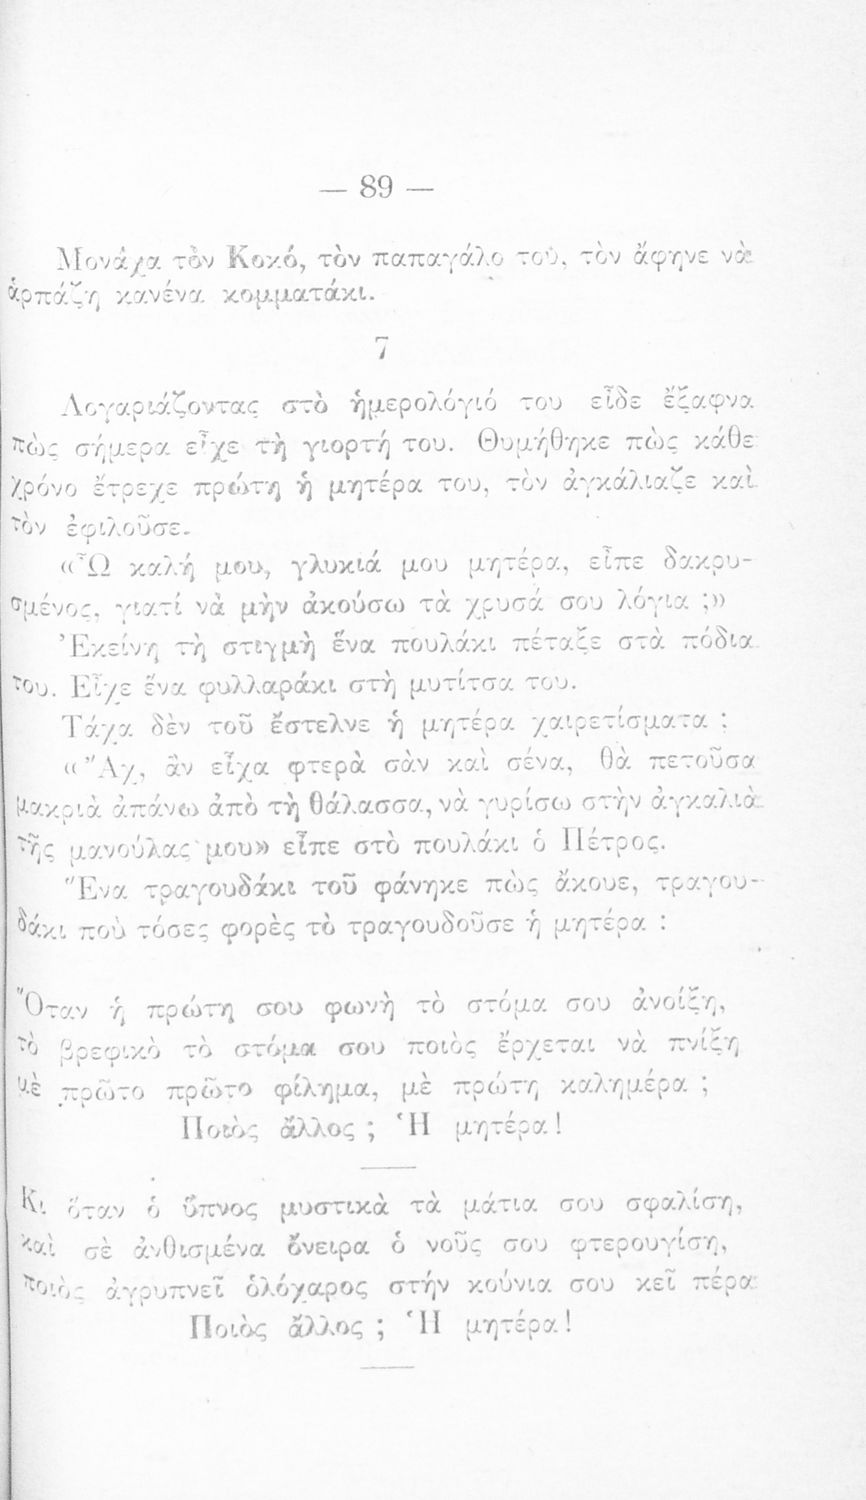 — 89 —
Μονάχα τὸν Κοκό, τὸν παπαγάλο του, τὸν ἄφηνε νὰ
ἁρπάζῃ κανένα κομματάκι.
7
Λογαριάζοντας στὸ ἡμερολόγιό του εἶδε ἔξαφνα
πὼς σήμερα εἶχε τὴ γιορτή του. Θυμήθηκε πὼς κάθε
χρόνο ἔτρεχε πρώτη ἡ μητέρα του, τὸν ἀγκάλιαζε καὶ
τὸν ἐφιλοῦσε.
«Ὦ καλή μου, γλυκιά μου μητέρα, εἶπε δακρυ-
σμένος, γιατί νὰ μὴν ἀκούσω τὰ χρυσά σου λόγια ;»
Ἐκείνη τὴ στιγμὴ ἕνα πουλάκι πέταξε στὰ πόδια
του. Εἶχε ἕνα φυλλαράκι στὴ μυτίτσα του.
Τάχα δὲν τοῦ ἔστελνε ἡ μητέρα χαιρετίσματα ;
«Ἄχ, ἂν εἶχα φτερὰ σὰν καὶ σένα, θὰ πετοῦσα
μακριὰ ἀπάνω ἀπὸ τὴ θάλασσα, νὰ γυρίσω στὴν ἀγκαλιὰ
τῆς μανούλας μου» εἶπε στὸ πουλάκι ὁ Πέτρος.
Ἕνα τραγουδάκι τοῦ φάνηκε πὼς ἄκουε, τραγου-
δάκι ποὺ τόσες φορὲς τὸ τραγουδοῦσε ἡ μητέρα :
Ὅταν ἡ πρώτη σου φωνὴ τὸ στόμα σου ἀνοίξῃ,
τὸ βρεφικὸ τὸ στόμα σου ποιὸς ἔρχεται νὰ πνίξῃ
μὲ πρῶτο πρῶτο φίλημα, μὲ πρώτη καλημέρα ;
Ποιὸς ἄλλος ; Ἡ μητέρα!
Κι ὅταν ὁ ὕπνος μυστικὰ τὰ μάτια σου σφαλίσῃ,
καὶ σὲ ἀνθισμένα ὄνειρα ὁ νοῦς σου φτερουγίσῃ,
ποιὸς ἀγρυπνεῖ ὁλόχαρος στήν κούνια σου κεῖ πέρα
Ποιὸς ἄλλος ; Ἡ μητέρα!